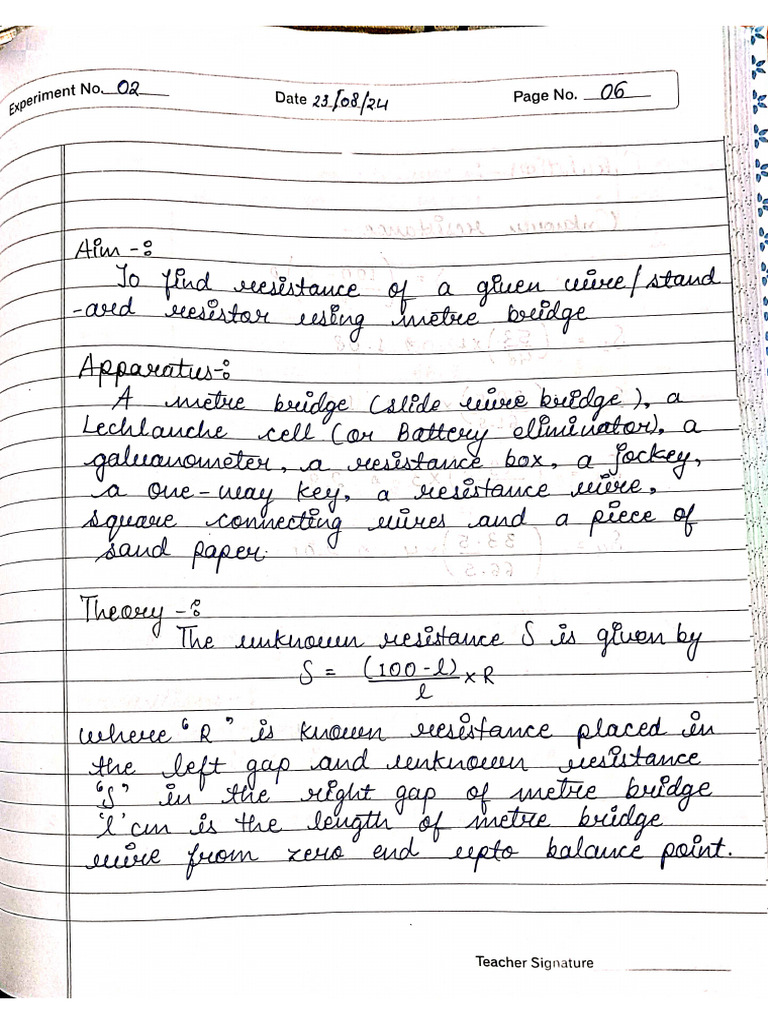 Experiment No. 02
Date 23/08/24
Page No. 06
Aim -:
To find resistance of a given wire/stand
-ard resistor using metre bridge
Apparatus-:
A metre bridge (slide wire bridge), a
Lechlanche cell (or Battery eliminator), a
galvanometer, a resistance box, a jockey,
a one-way key, a resistance wire,
square connecting wires and a piece of
sand paper.
Theory -:
The unknown resistance S is given by
S = (100-l)/l × R
where "R" is known resistance placed in
the left gap and unknown resistance
"S" in the right gap of metre bridge
'l' cm is the length of metre bridge
wire from zero end upto balance point.
Teacher Signature